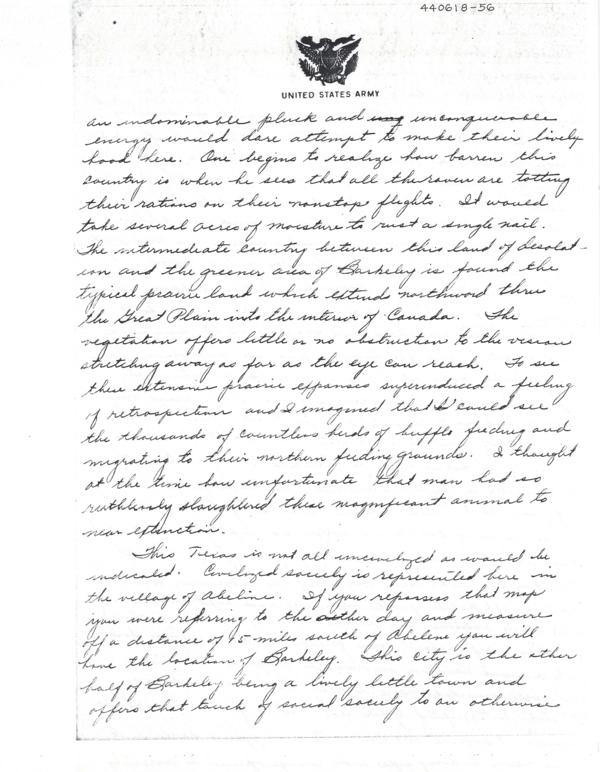 440618-56
UNITED STATES ARMY
an indominable pluck and unconquerable
energy would dare attempt to make their lively
hood here. One begins to realize how barren this
country is when he sees that all the raven are totting
their rations on their nonstop flights. It would
take several acres of moisture to rust a single nail.
The intermediate country between this land of desolat-
ion and the greener area of Barkeley is found the
typical prairie land which extends northward thru
the Great Plain into the interior of Canada. The
vegetation offers little or no obstruction to the vision
stretching away as far as the eye can reach. To see
these extensive prairie expanses superinduced a feeling
of retrospection and I imagined that I could see
the thousands of countless herds of bufflo feeding and
migrating to their northern feeding grounds. I thought
at the time how unfortunate that man had so
ruthlessly slaughtered these magnificant animal to
near extinction.
This Texas is not all uncivilized as would be
indicated. Civilized society is represented here in
the village of Abeline. If you repossess that map
you were referring to the other day and measure
off a distance of 15 miles south of Abelene you will
have the location of Barkeley. This city is the other
half of Barkeley being a lively little town and
offers that touch of social society to an otherwise